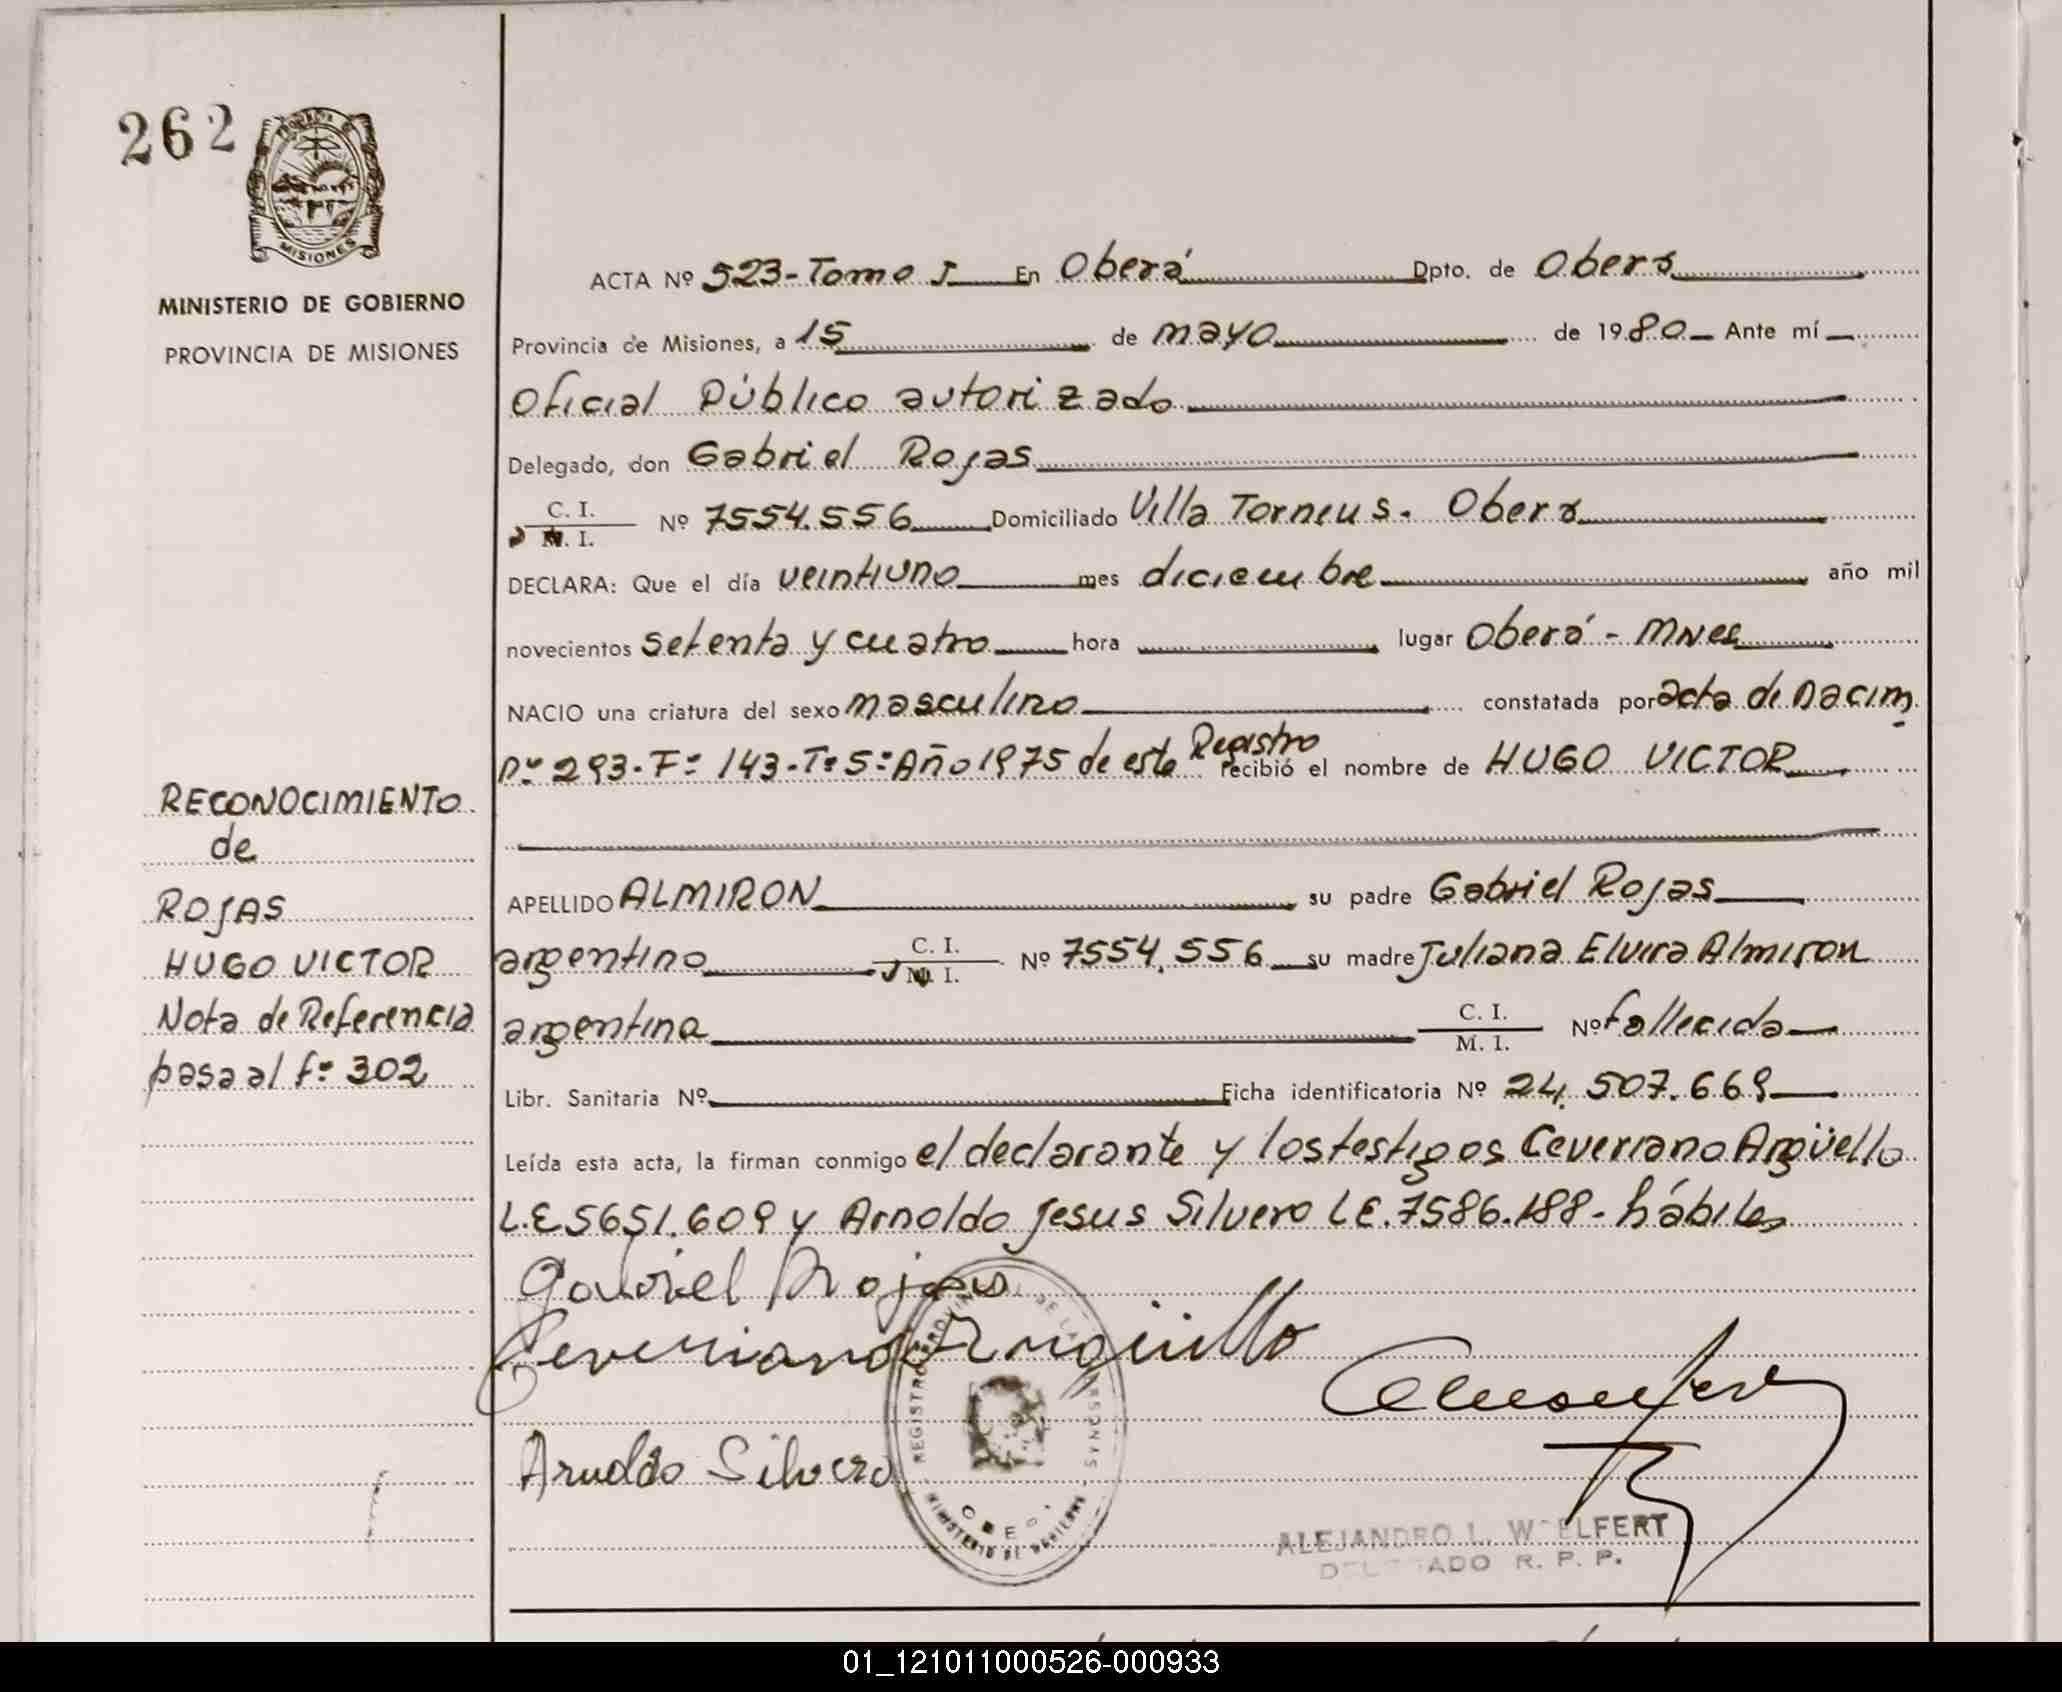 262
PROVINCIA DE
MISIONES
MINISTERIO DE GOBIERNO
PROVINCIA DE MISIONES
RECONOCIMIENTO
de
ROJAS
HUGO VICTOR
Nota de Referencia
pasa al fº 302
ACTA Nº 523-Tomo I En Oberá Dpto. de Oberá
Provincia de Misiones, a 15 de mayo de 1980 Ante mí
Oficial Público autorizado
Delegado, don Gabriel Rojas
C. I.
M. I. Nº 7554.556 Domiciliado Villa Torneus. Oberá
DECLARA: Que el día veintiuno mes diciembre año mil
novecientos setenta y cuatro hora lugar Oberá - Mnes
NACIO una criatura del sexo masculino constatada por acta de nacim.
nº 293. Fº 143. Tº 5º Año 1975 de este Registro recibió el nombre de HUGO VICTOR
APELLIDO ALMIRON su padre Gabriel Rojas
argentino C. I. M. I. Nº 7554.556 su madre Juliana Elvira Almiron
argentina C. I. M. I. Nº fallecida
Libr. Sanitaria Nº Ficha identificatoria Nº 24.507.669
Leída esta acta, la firman conmigo el declarante y los testigos Ceveriano Argüello
L.E 5651.609 y Arnoldo Jesus Silvero L.E. 7586.188- hábiles
Gabriel Rojas
Ceveriano Argüello
Arnoldo Silvero
REGISTRO PROVINCIAL DE LAS PERSONAS
MINISTERIO DE GOBIERNO
ALEJANDRO L. WOELFERT
DELEGADO R. P. P.
01_121011000526-000933